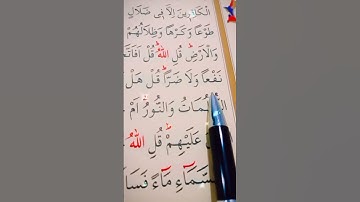 الْكَافِرِينَ اِلَّا ف۪ي ضَلَالٍ
طَوْعًا وَكَرْهًا وَظِلَالُهُمْ
وَالْاَرْضِۜ قُلِ اللّٰهُۜ قُلْ اَفَاتَّ
نَفْعًا وَلَا ضَرًّاۜ قُلْ هَلْ
الظُّلُمَاتُ وَالنُّورُۚ اَمْ
عَلَيْهِمْۜ قُلِ اللّٰهُ
السَّمَٓاءِ مَٓاءً فَسَا